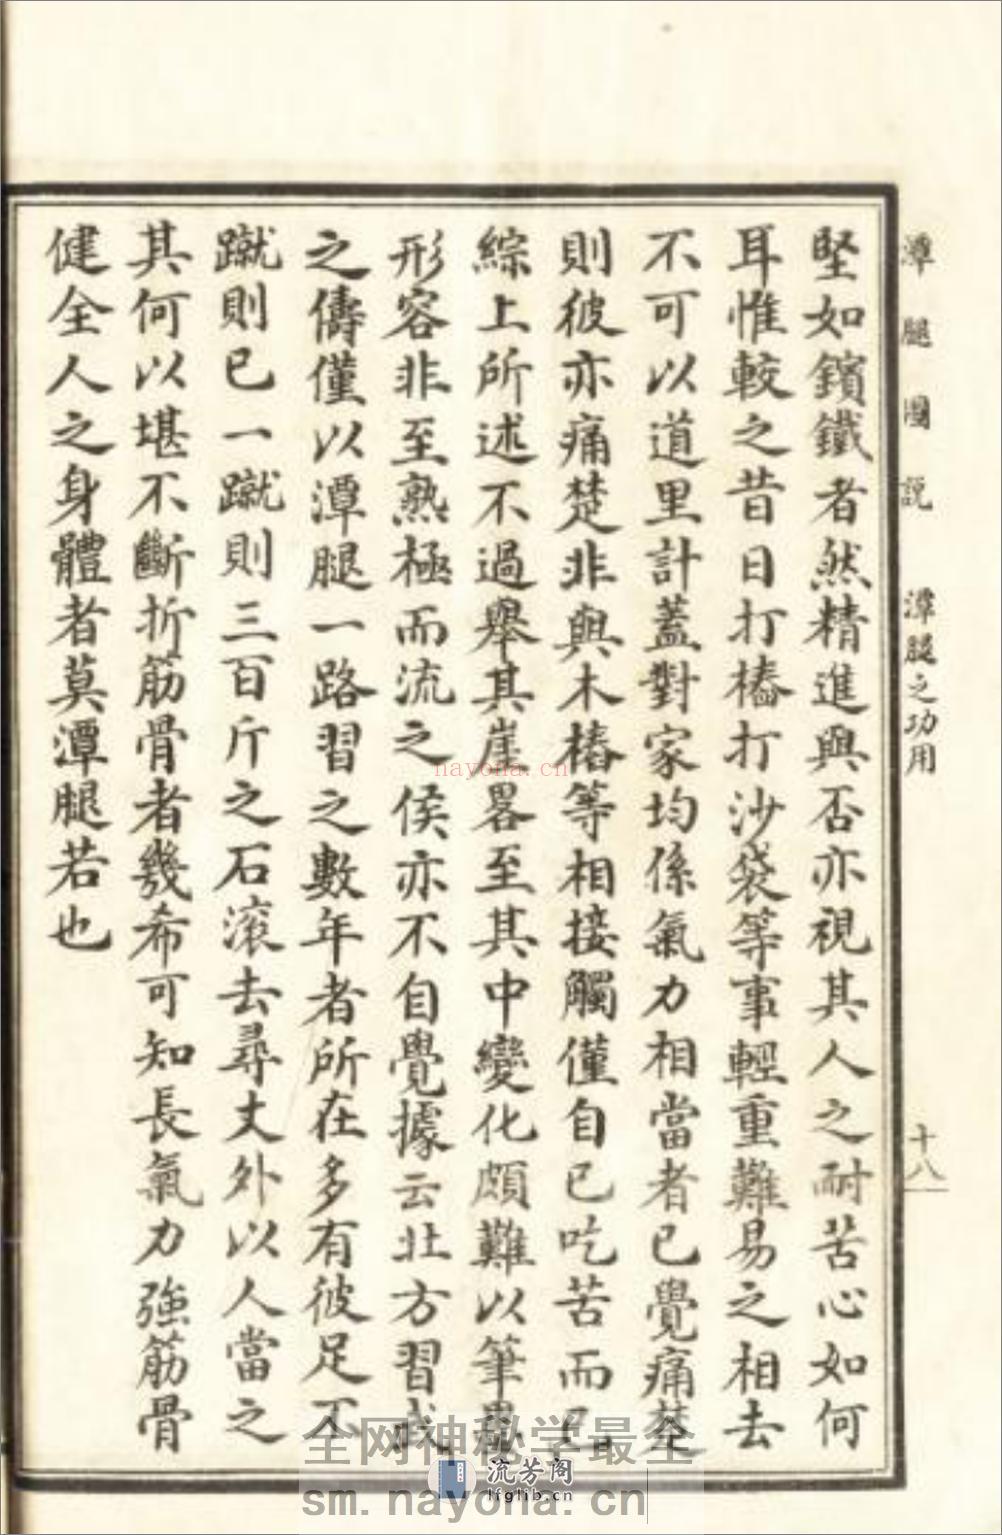 潭腿圖説　潭腿之功用　十八
堅如鑌鐵者然精進與否亦視其人之耐苦心如何
耳惟較之昔日打樁打沙袋等事輕重難易之相去
不可以道里計蓋對家均係氣力相當者已覺痛楚
則彼亦痛楚非與木樁等相接觸僅自己吃苦而已
綜上所述不過舉其崖畧至其中變化頗難以筆墨
形容非至熟極而流之侯亦不自覺據云北方習武
之儔僅以潭腿一路習之數年者所在多有彼足不
蹴則已一蹴則三百斤之石滚去尋丈外以人當之
其何以堪不斷折筋骨者幾希可知長氣力強筋骨
健全人之身體者莫潭腿若也
nayona.cn
全网神秘学最全
流芳阁
lfglib.cn
sm.nayona.cn